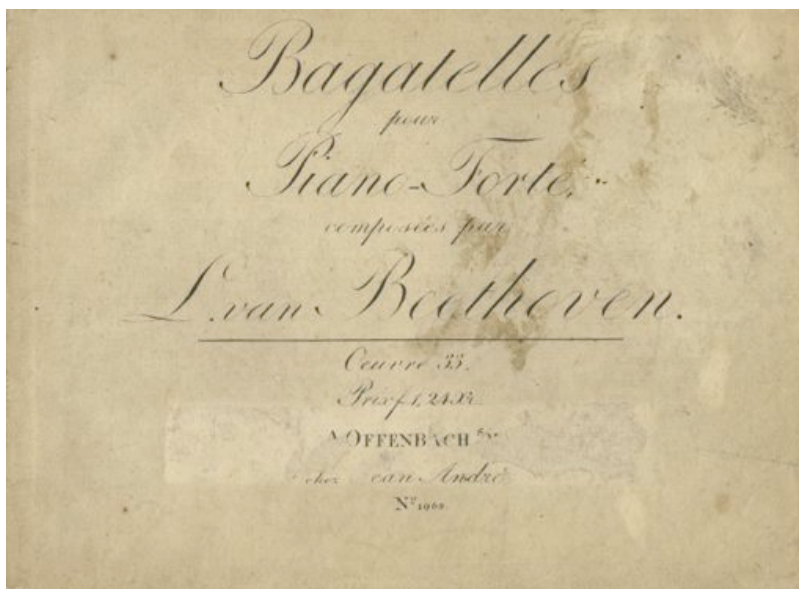 Bagatelles
pour
Piano-Forté,
composées par
L. van Beethoven.
Oeuvre 33.
Prix f. 1, 24 Xr.
A OFFENBACH s/m
chez ean André
Nº